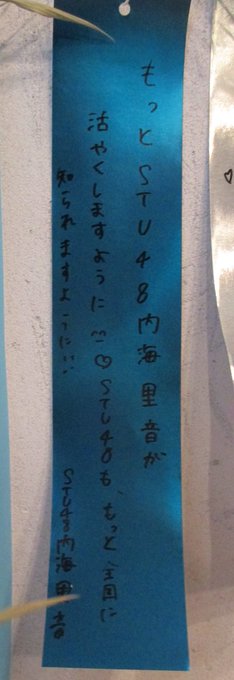 もっとSTU48内海里音が
活やくしますように^^♡STU48も、もっと全国に
知られますように...
STU48内海里音